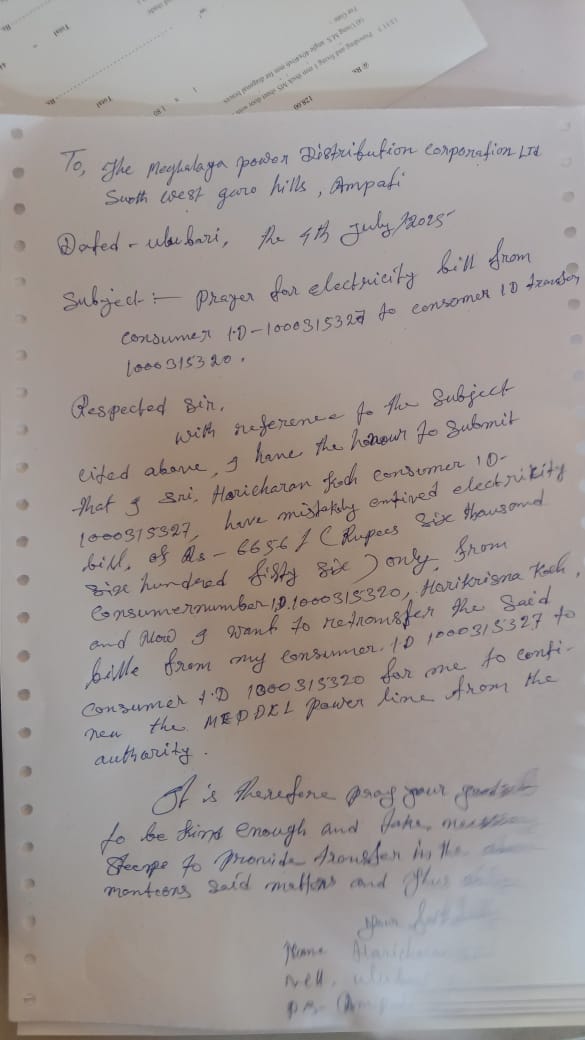 To, The Meghalaya power Distribution corporation LTD
South west garo hills, Ampati
Dated - ulubari, the 4th July/2025
Subject :- prayer for electricity bill from
consumer I.D-1000315327 to consomer ID transfer
1000315320.
Respected Sir,
with reference to the Subject
cited above, I have the honour to Submit
that I Sri, Haricharan Koch consumer ID-
1000315327, have mistakely entired electrikity
bill, of Rs - 6656/ (Rupees Six thousand
Six hundred fifty Six) only, from
Consumernumber I.D.1000315320, Harikrisna Koch,
and Now I want to retransfer the Said
bille from my consumer. ID 1000315327 to
Consumer I.D 1000315320 for me to conti-
neu the power line from the
authority.
It is therefore pray your
to be kind enough and take,
Steepe to Provide transfer in the
said matters and thus
your
Name Haricharan
vell.